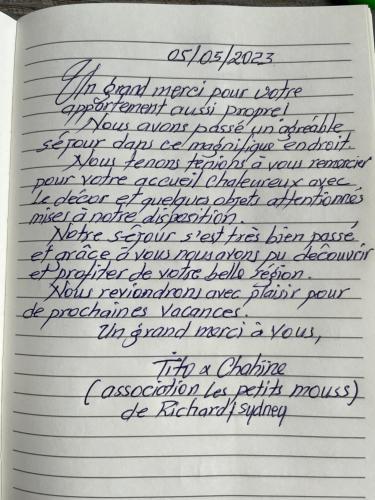 05/05/2023
Un grand merci pour votre
appartement aussi propre!
Nous avons passé un agréable
séjour dans ce magnifique endroit.
Nous tenons tenions à vous remercier
pour votre accueil chaleureux avec
le décor et quelques objets attentionnés
mises à notre disposition.
Notre séjour s'est très bien passé
et grâce à vous nous avons pu découvrir
et profiter de votre belle région.
Nous reviendrons avec plaisir pour
de prochaines vacances.
Un grand merci à vous,
Tito & Chahine
(association les petits mouss)
de Richard/Sydney